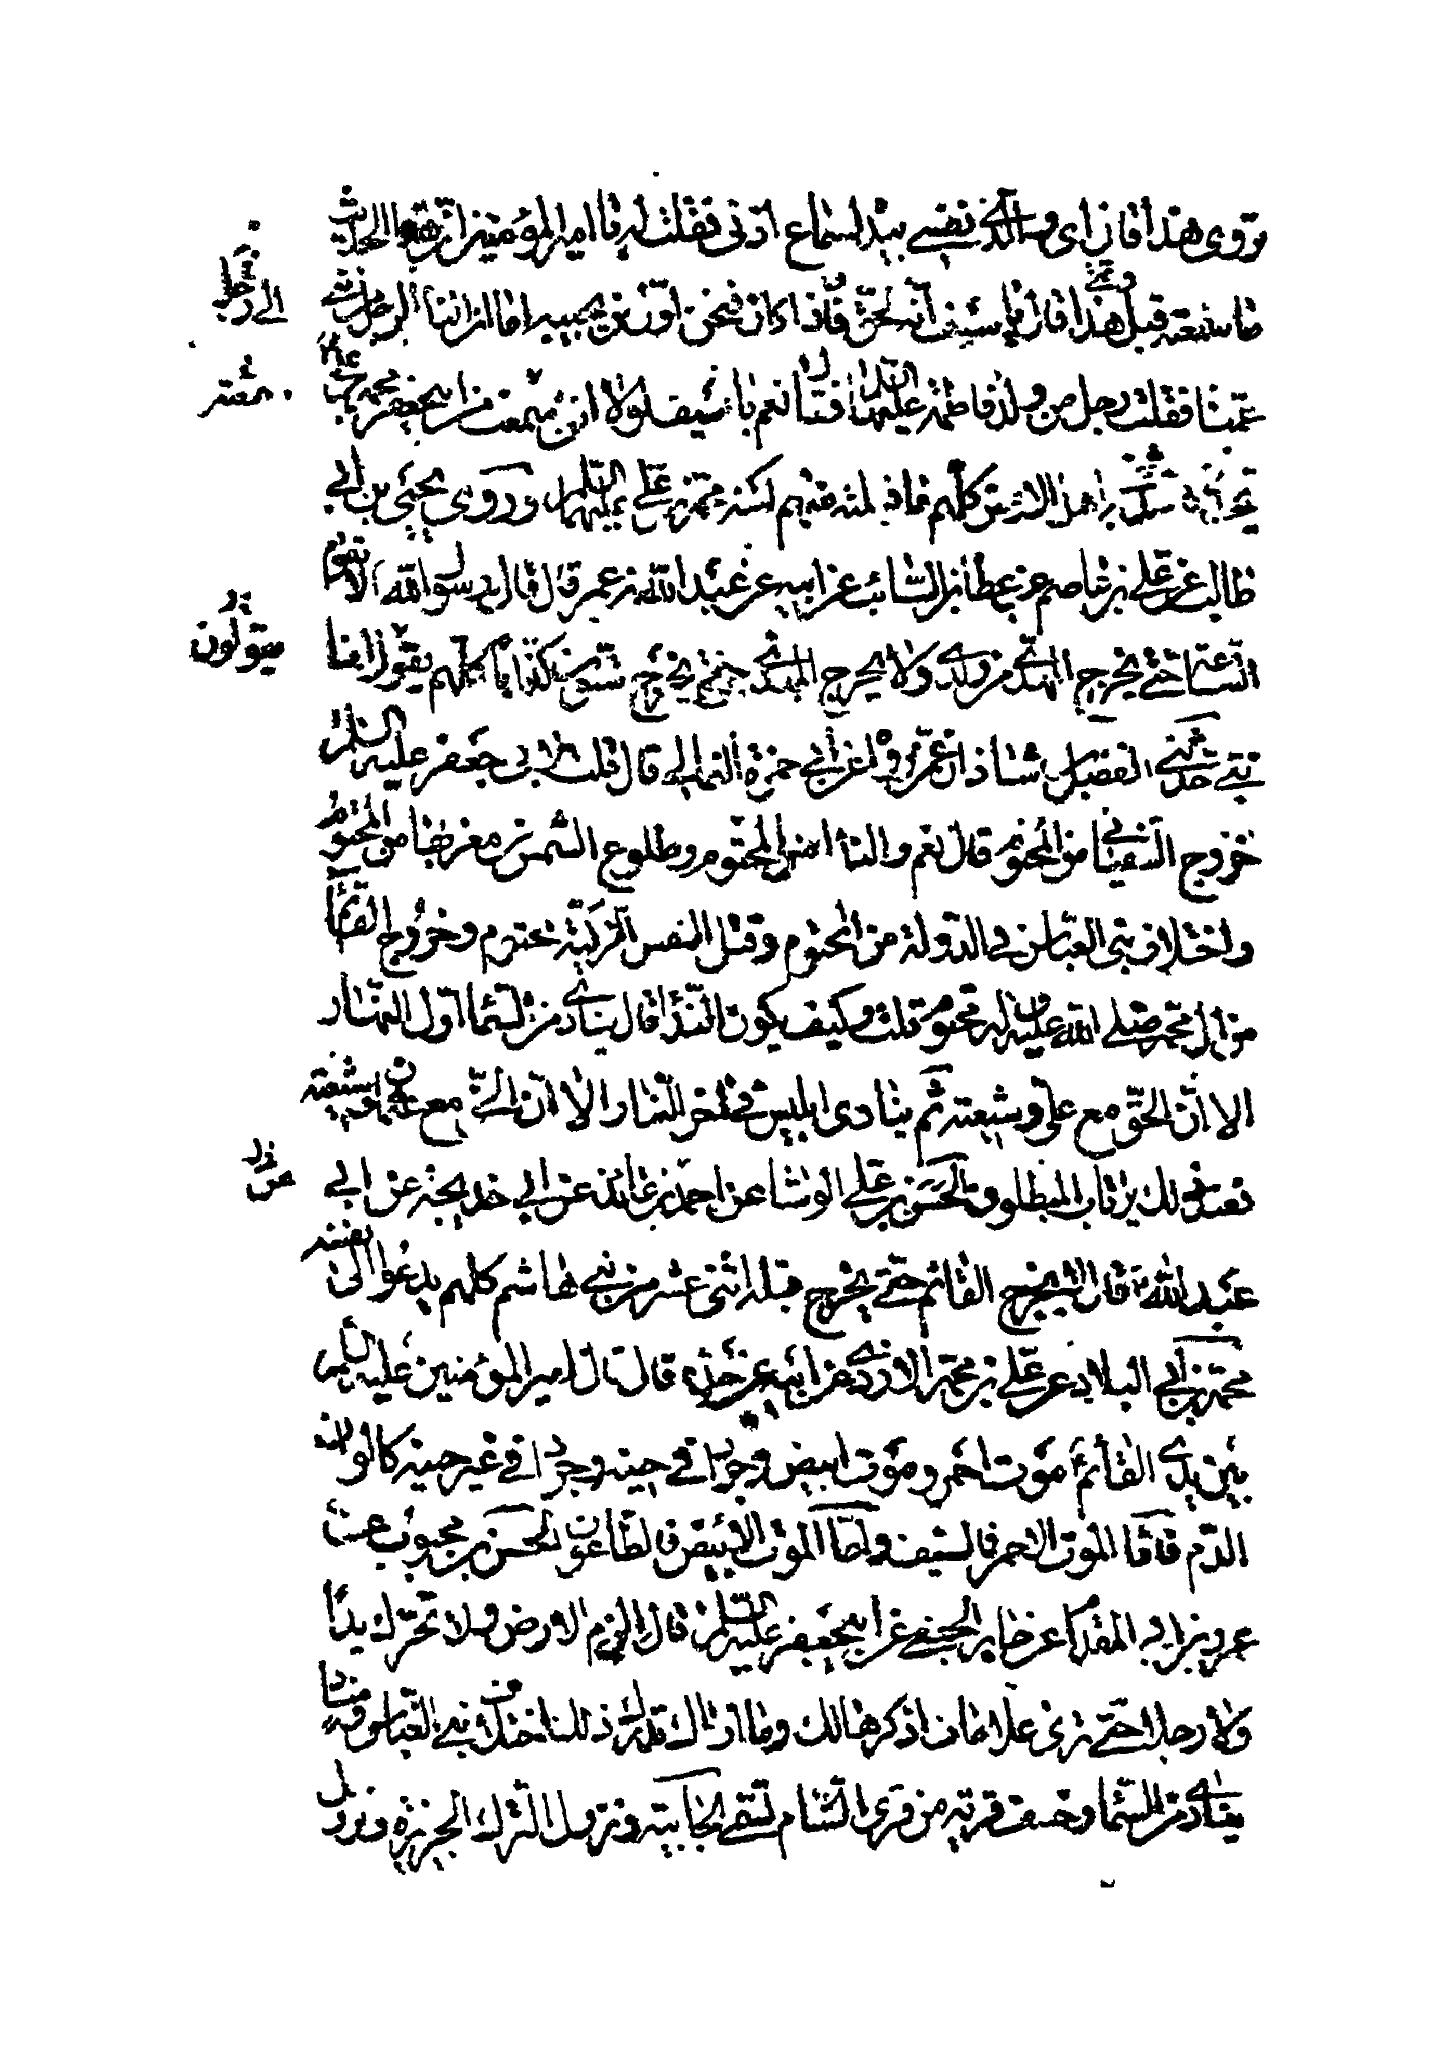 تروي هذا قال اي والذي نفسي بيده لسماع اذني فقلت له يا امير المؤمنين ان هذا الحديث
ما سمعته قبل وقتي هذا قال يا سيف انه لحق فاذا كان فنحن اول من يجيبه اما ان النداء الى رجل من
الى رجل
عمنا فقلت رجل من ولد فاطمة عليها السلام فقال نعم يا سيف لولا انني سمعت من ابي جعفر محمد بن علي
سمعته
يحدثني اهل الارض كلهم ما قبلته منهم لكنه محمد بن علي عليهما السلام وروى يحيى بن ابي
طالب عن علي بن عاصم عن عطاء بن السائب عن ابيه عن عبد الله بن عمر قال قال رسول الله لا تقوم
الساعة حتى يخرج المهدي من ولدي ولا يخرج المهدي حتى يخرج ستون كذابا كلهم يقول انا
يقولون
نبي حدثني الفضل بن شاذان عمن رواه عن ابي حمزة الثمالي قال قلت لابي جعفر عليه السلم
خروج السفياني من المحتوم قال نعم والندا من المحتوم وطلوع الشمس من مغربها من المحتوم
واختلاف بني العباس في الدولة من المحتوم وقتل النفس الزكية محتوم وخروج القائم
من ال محمد صلى الله عليه واله محتوم قلت وكيف يكون الندا قال ينادي من السما اول النهار
الا ان الحق مع علي وشيعته ثم ينادي ابليس في اخر النهار الا ان الحق مع عثمان وشيعته
فعند ذلك يرتاب المبطلون الحسن بن علي الوشا عن احمد بن عائذ عن ابي خديجة عن ابي
عن
عبد الله قال لا يخرج القائم حتى يخرج قبله اثنى عشر من بني هاشم كلهم يدعوا الى نفسه
محمد بن ابي البلاد عن علي بن محمد الازدي عن ابيه عن جده قال قال امير المؤمنين عليه السلم
بين يدي القائم موت احمر وموت ابيض وجراد في حينه وجراد في غير حينه كالوان
الدم فاما الموت الاحمر فالسيف واما الموت الابيض فالطاعون الحسن بن محبوب عن
عمرو بن ابي المقدام عن جابر الجعفي عن ابي جعفر عليه السلم قال الزم الارض ولا تحرك يدا
ولا رجلا حتى ترى علامات اذكرها لك وما اراك تدرك ذلك اختلاف بني العباس ومناد
ينادي من السما وخسف قرية من قرى الشام تسمى الجابية ونزول الترك الجزيرة ونزول